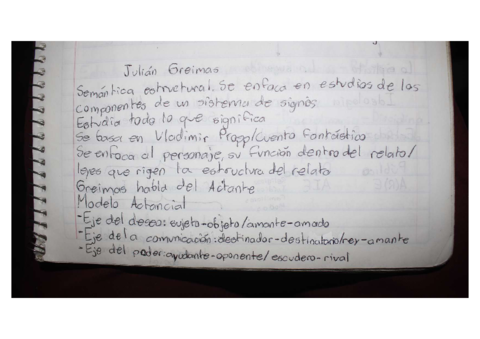 Julián Greimas
Semántica estructural. Se enfoca en estudios de los
componentes de un sistema de signos
Estudia todo lo que significa
Se basa en Vladimir Propp/cuento fantástico
Se enfoca al personaje, su función dentro del relato/
leyes que rigen la estructura del relato
Greimas habla del Actante
Modelo Actancial
-Eje del deseo: sujeto-objeto/amante-amado
-Eje de la comunicación: destinador-destinatario/rey-amante
-Eje del poder: ayudante-oponente/escudero-rival